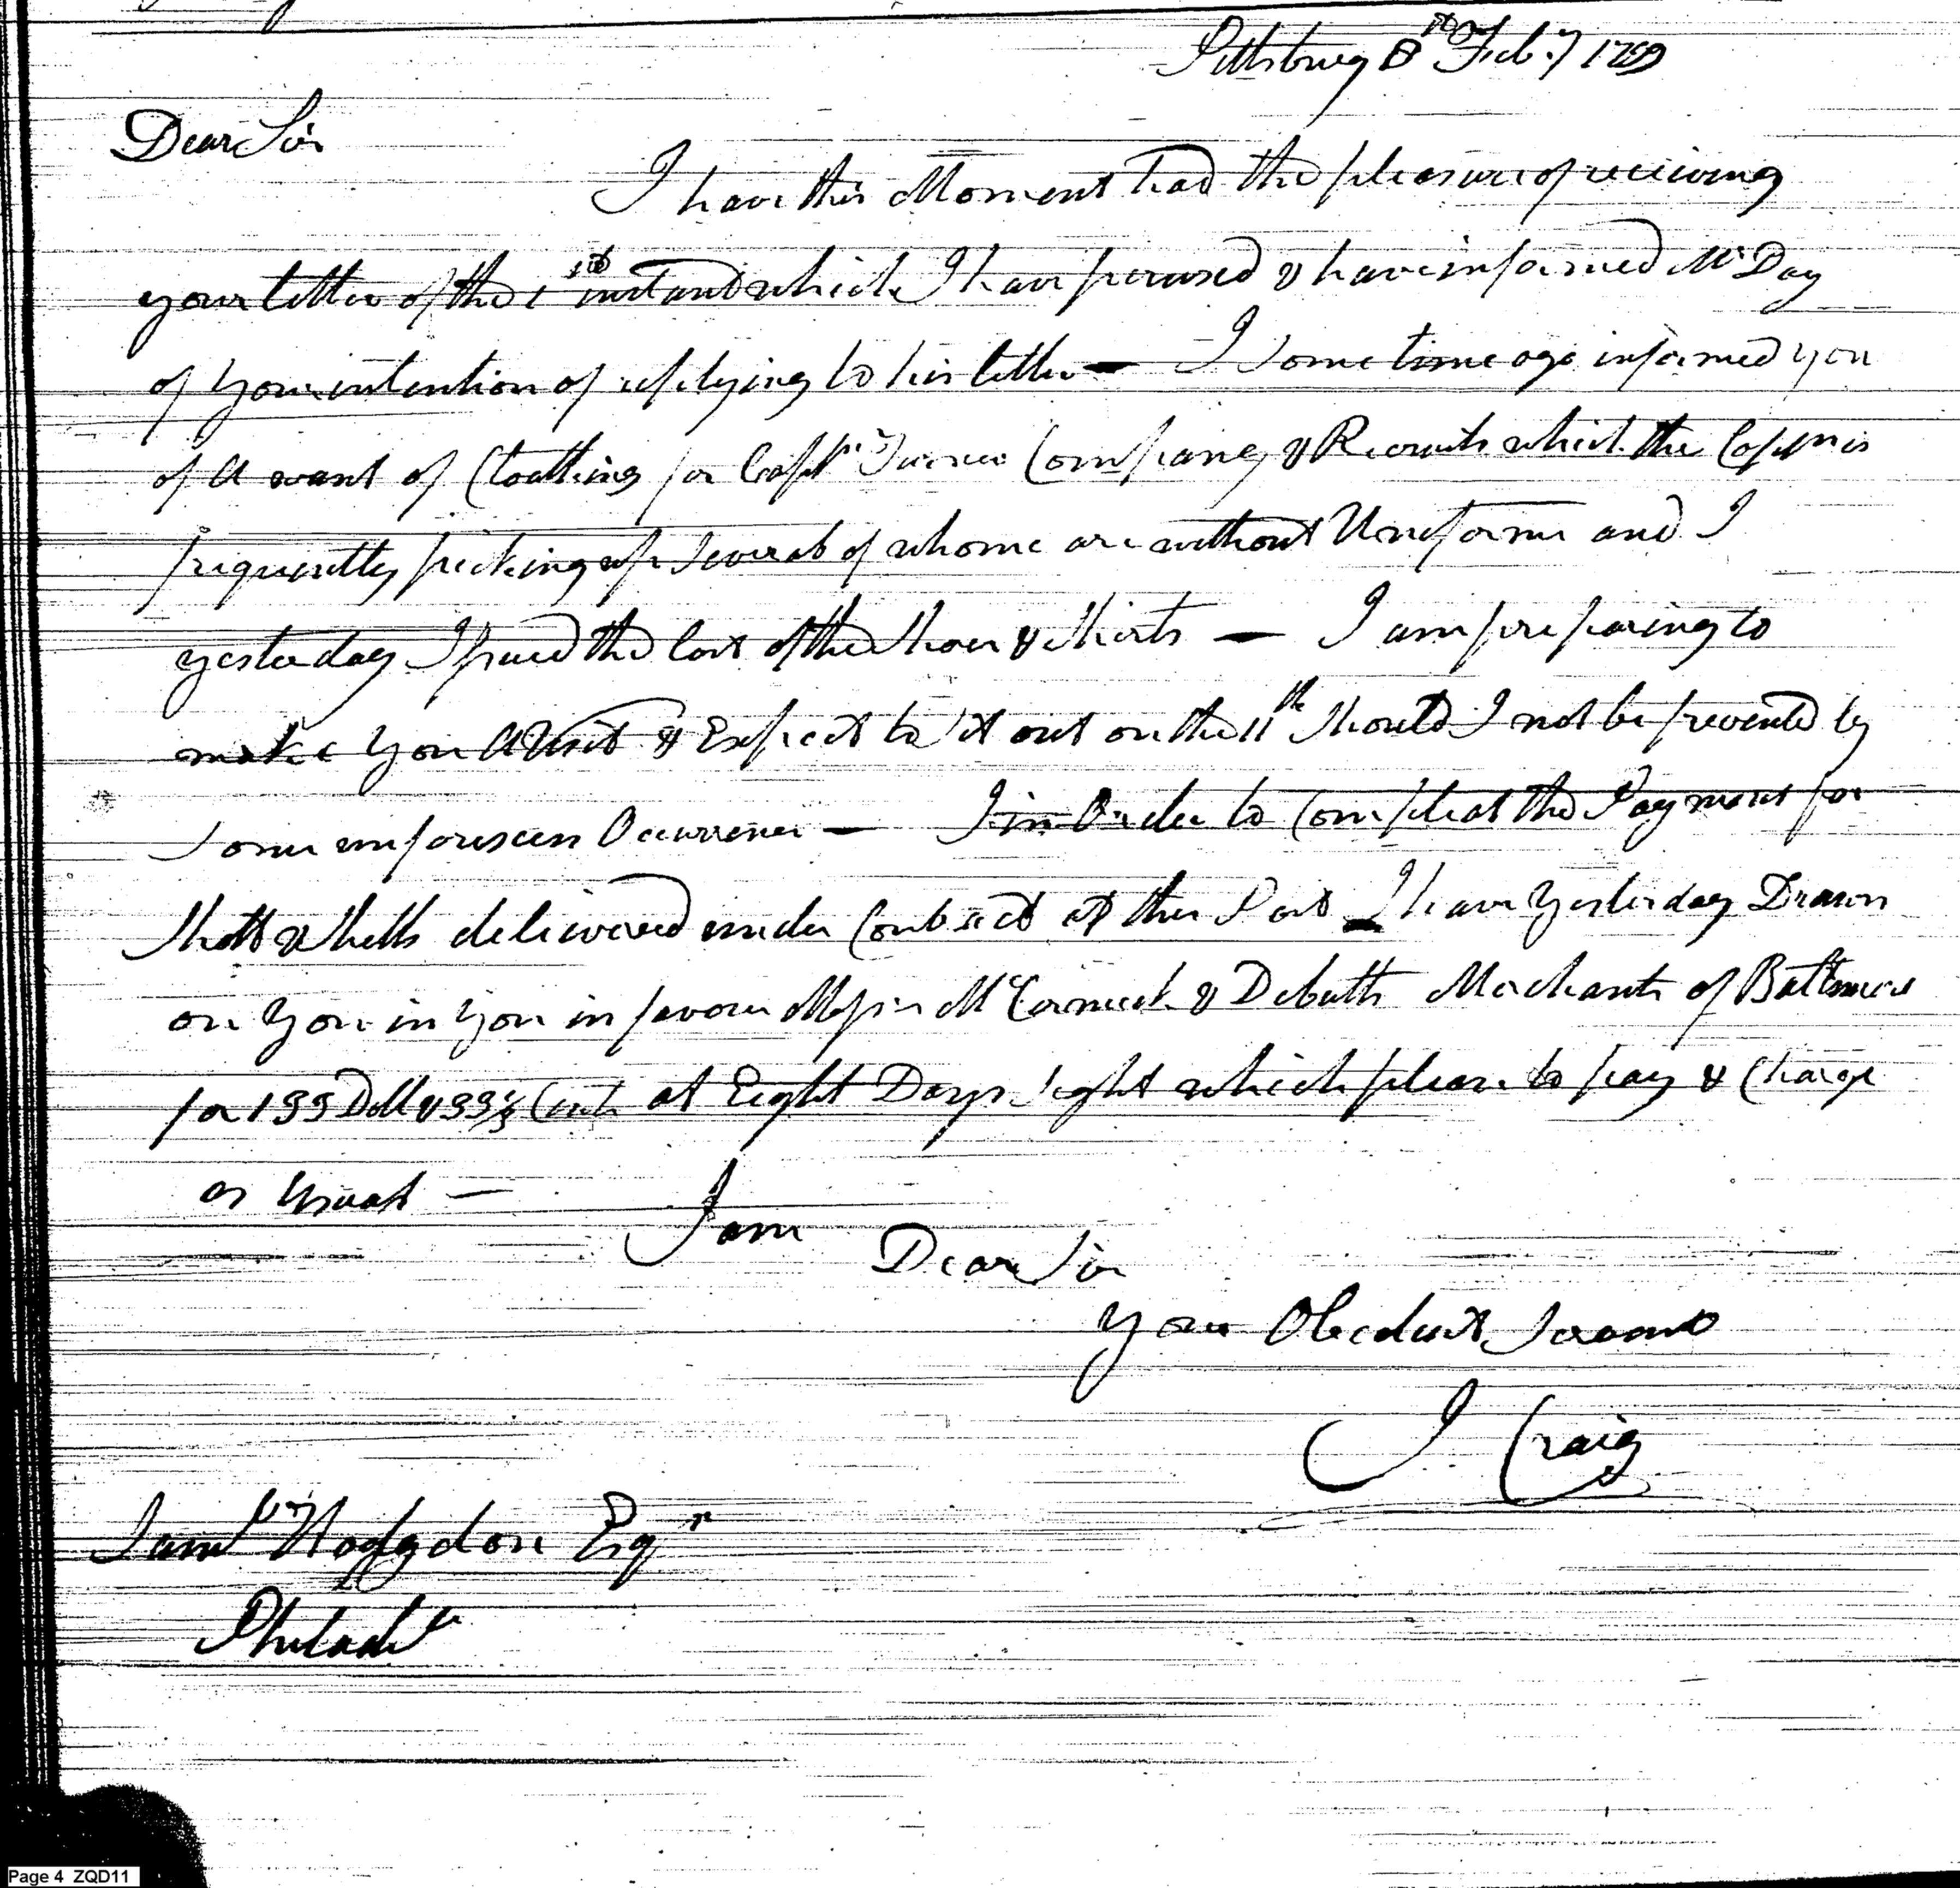 Pittsburg 8th Feb.y 1799
Dear Sir
I have this Moment had the pleasure of receiving
your letter of the 1st instant which I have perused & have informed Mr Day
of your intention of replying to his letter — I some time ago informed you
of a want of Cloathing for Capt. Company & Recruits which the Captn is
frequently picking up several of whome are without Uniforms and I
yesterday the last of the Shoes & Shirts — I am preparing to
make you a Visit & Expect to set out on the 11th should I not be prevented by
some unforeseen Occurrence — I in Order to Compleat the Payment for
Shott & Shells delivered under Contract at this Post I have Yesterday Drawn
on You in You in favour Messrs McCormick & Merchants of Baltimore
for 133 Doll & 33⅓ Cents at Eight Days sight which please to pay & Charge
as Usual —
I am
Dear Sir
Your Obedient Servant
I Craig
Saml Hodgdon Esqr
Philada
Page 4 ZQD11